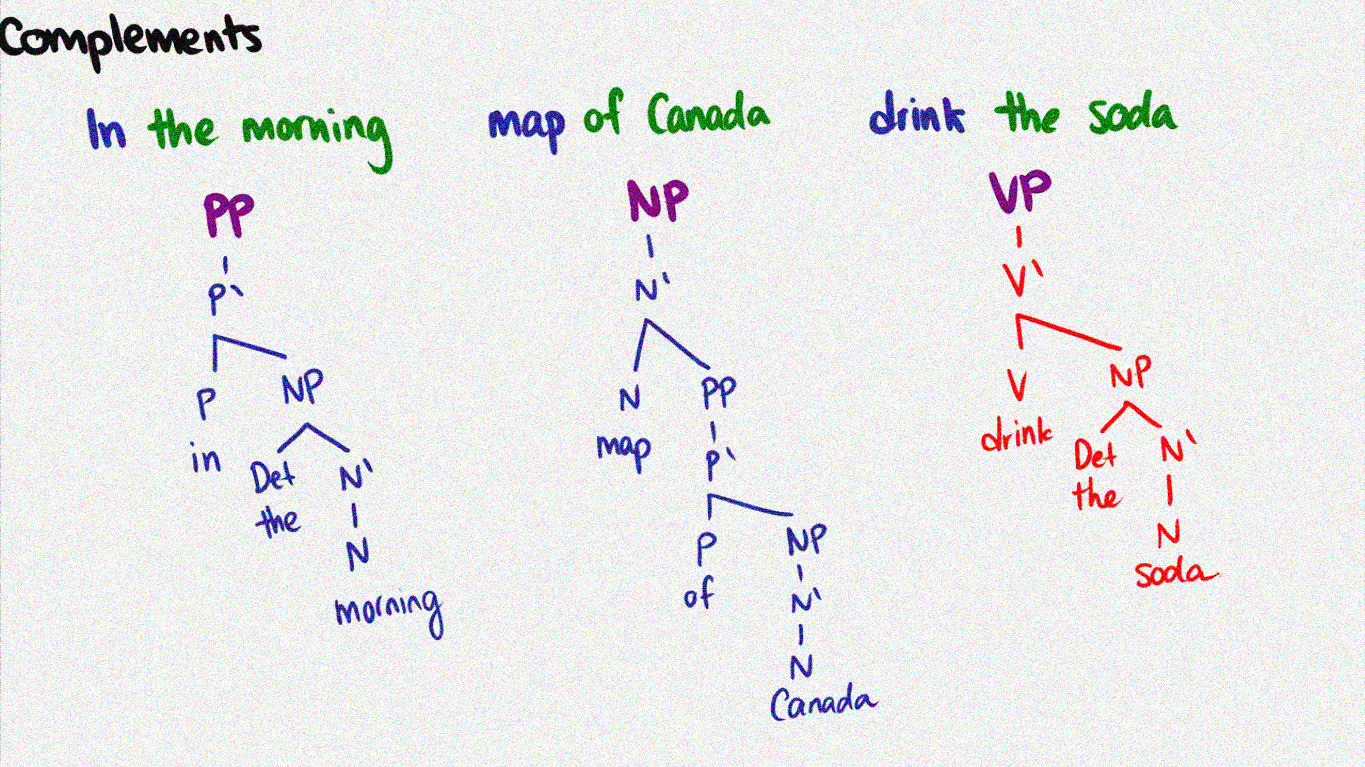 Complements
In the morning
PP
P`
P NP
in
Det N`
the
N
morning
map of Canada
NP
N`
N PP
map
P`
P NP
of
N`
N
Canada
drink the soda
VP
V`
V NP
drink
Det N`
the
N
soda